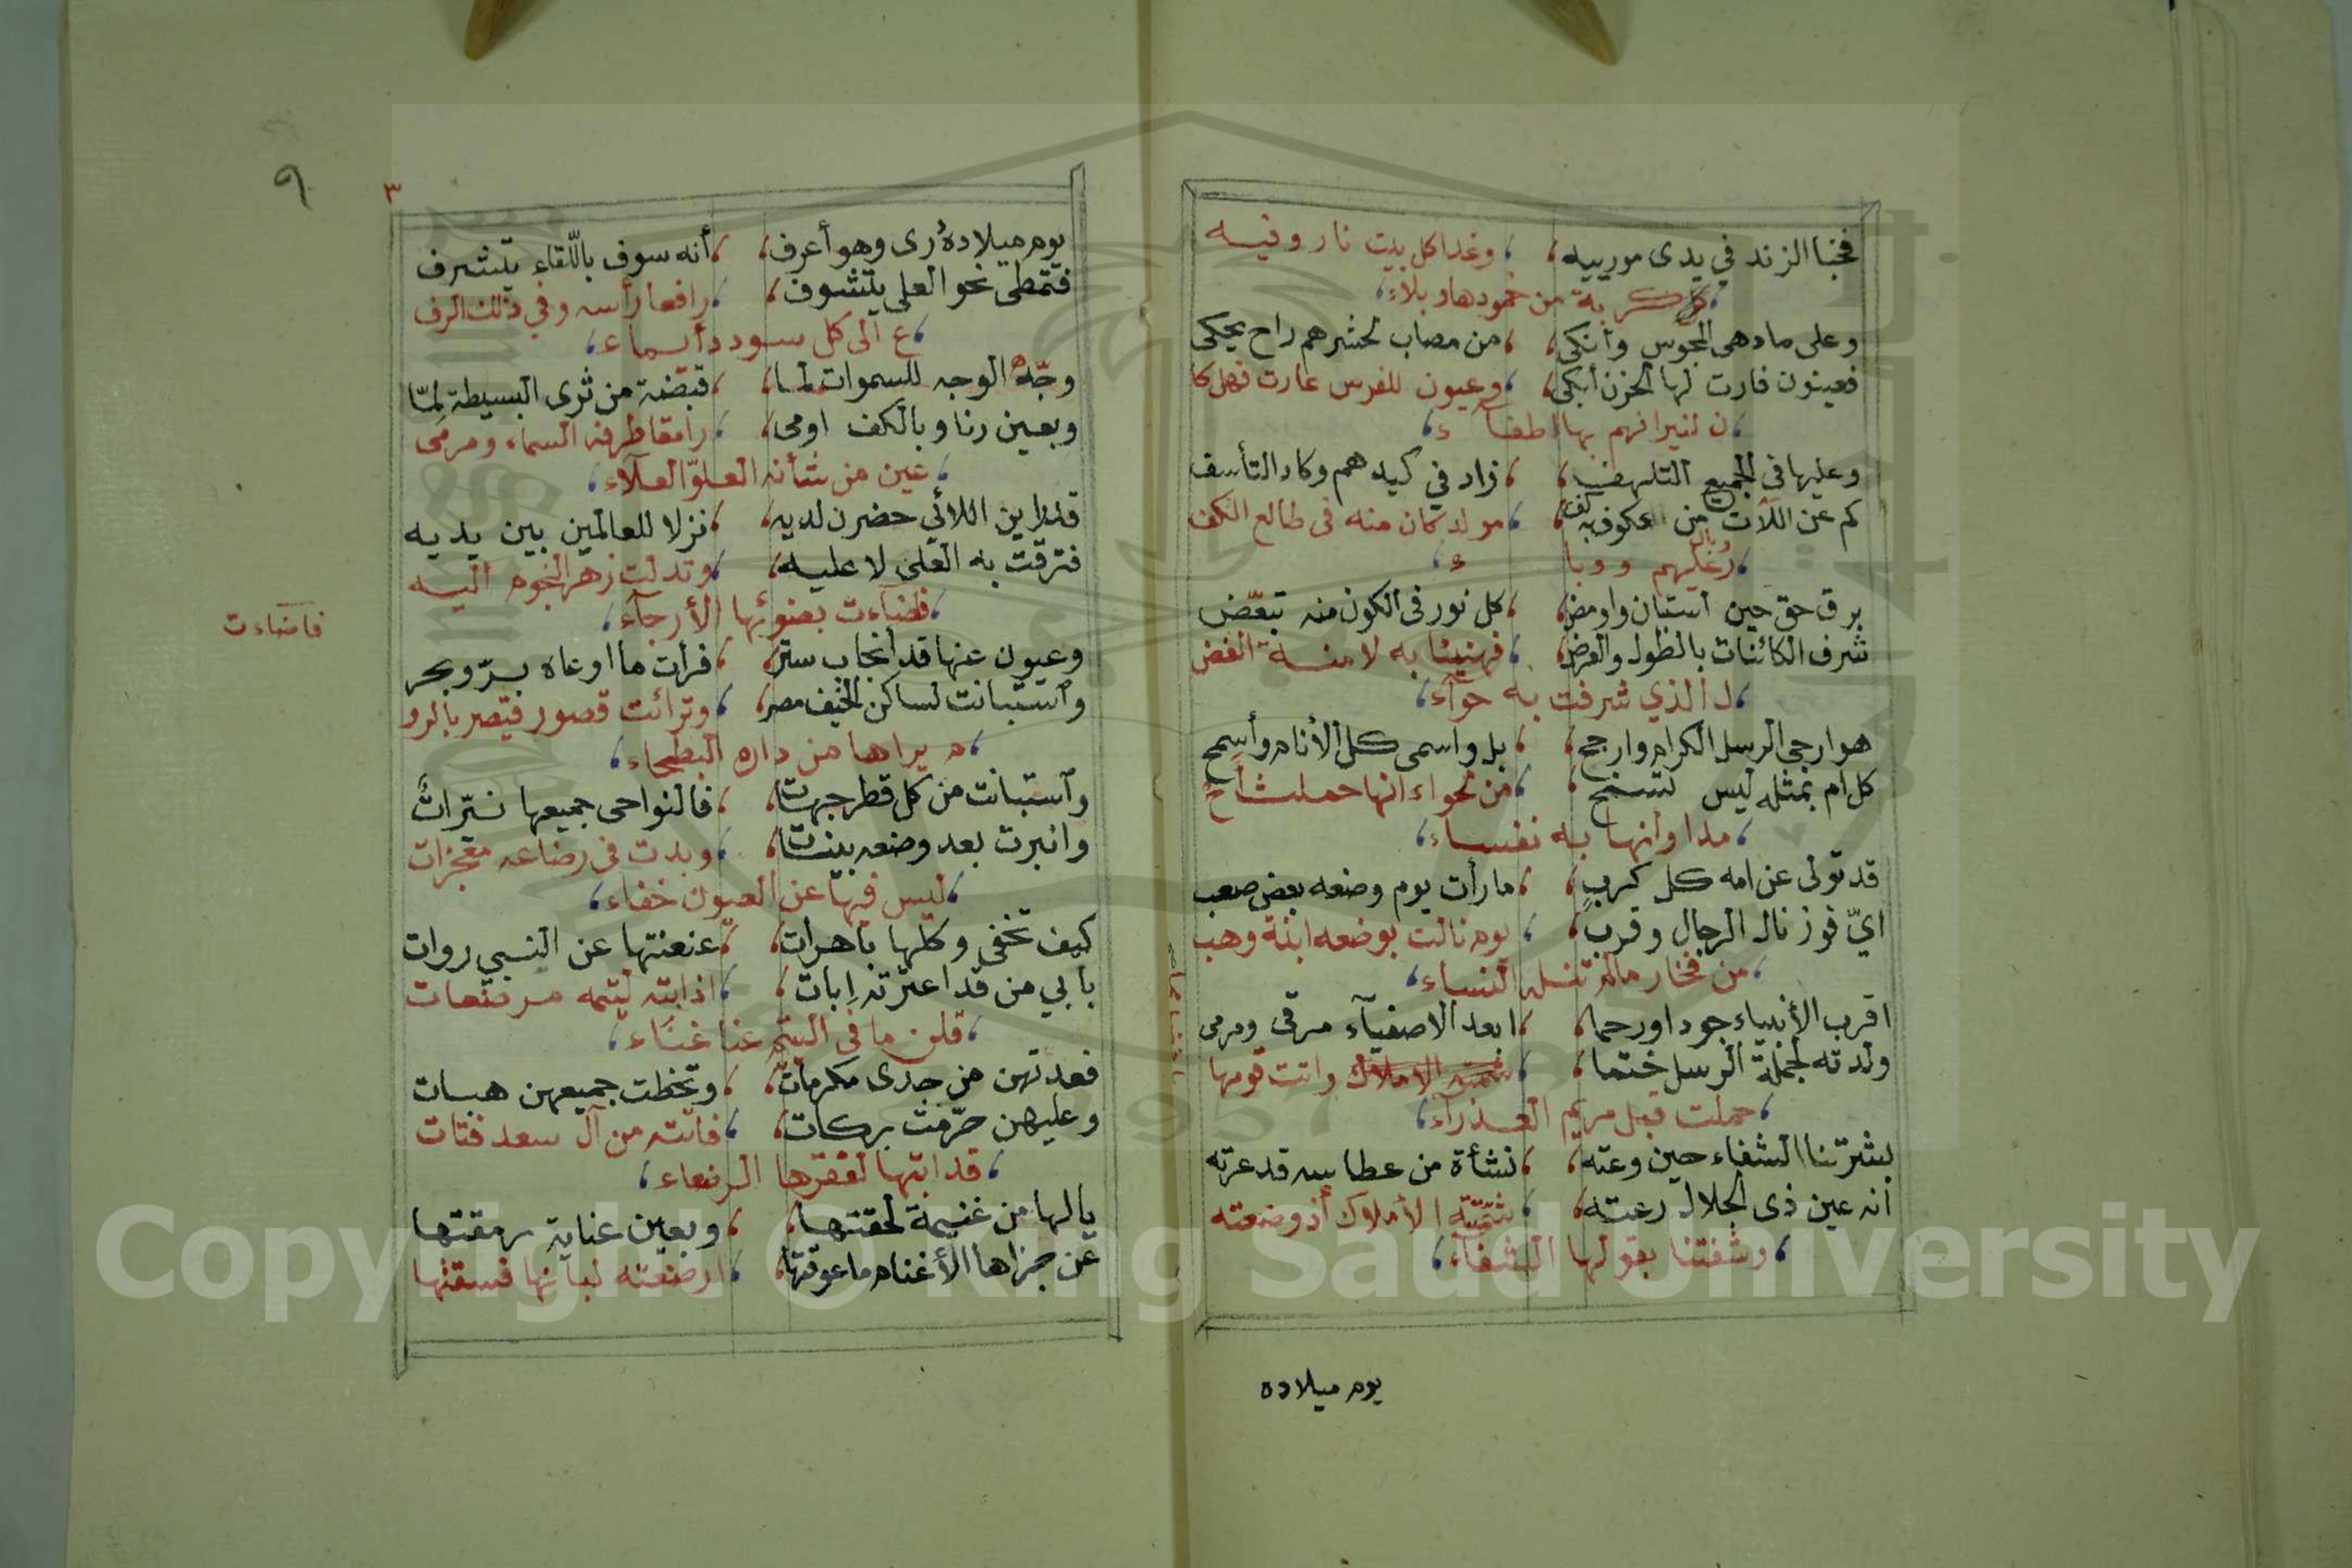 فخبا الزند في يدى مورييه ، وغدا كل بيت نار وفيه
كربة من خمودها وبلاء
وعلى ما دهى المجوس وأنكى ، من مصاب لحشرهم راح يحكى
فعيون فارت لها الحزن أبكى ، وعيون للفرس غارت فهل كا
ن لنيرانهم بها اطفاء
وعليها فى الجميع التلهف ، زاد في كيدهم وكاد التأسف
كم عن اللات من عكوف به كف ، مولد كان منه فى طالع الكف
ر عليهم ووباء
برق حق حين استبان واومض ، كل نور فى الكون منه تبعض
شرف الكائنات بالطول والعرض ، فهنيئا به لامنة الفض
ل الذي شرفت به حوآء
هو ارجى الرسل الكرام وارجح ، بل واسمى كل الأنام وأسمح
كل ام بمثله ليس تسمح ، من لحواء انها حملت أح
مدا وانها به نفساء
قد تولى عن امه كل كرب ، ما رأت يوم وضعه بعض صعب
اي فوز نال الرجال وقرب ، يوم نالت بوضعه ابنة وهب
من فخار مالم تنله النساء
اقرب الأنبياء جودا ورحما ، ابعد الاصفيآء مرقى ومرمى
ولدته لجملة الرسل ختما ، واتت قومها
حملت قبل مريم العذرآء
بشرتنا الشفاء حين وعته ، نشأة من عطاسه قد عرته
انه عين ذى الجلال رعته ، شمتته الأملاك أذ وضعته
وشفتنا بقولها الشفآء
يوم ميلاده
٩
٣
يوم ميلاده رى وهو أعرف ، أنه سوف باللقاء يتشرف
فتمطى نحو العلى يتشوف ، رافعا رأسه وفي ذلك الرف
ع الى كل سودد أيماء
وجه الوجه للسموات لما ، قبضة من ثرى البسيطة لما
وبعين رنا وبالكف اومى ، رامقا طرفه السماء ومرمى
عين من شأنه العلو العلآء
قد رأين اللائي حضرن لديه ، نزلا للعالمين بين يديه
فترقت به العلى لا عليه ، وتدلت زهر النجوم اليه
فضآءت بضوئها الأرجآء
فاضاءت
وعيون عنها قد أنجاب ستر ، فرأت ما اوعاه بر وبحر
وآستبانت لساكن الخيف مصر ، وترائت قصور قيصر بالرو
م يراها من داره البطحاء
وآستبانت من كل قطر جهات ، فالنواحى جميعها نيرات
وانبرت بعد وضعه بينات ، وبدت فى رضاعه معجزات
ليس فيها عن العيون خفاء
كيف تخفى وكلها باهرات ، عنعنتها عن النبي روات
بأبي من قد اعترته إبات ، اذ ابته ليتمه مرضعات
قلن ما فى اليتم عنا غنآء
فعدتهن من جدى مكرمات ، وتخطت جميعهن هبات
وعليهن حرمت بركات ، فاتته من آل سعد فتات
قد ابتها لفقرها الرضعاء
يالها من غنيمة لحقتها ، وبعين عناية رمقتها
عن جزاها الأغنام ما عوقتها ، ارضعته لبانها فسقتها
Copyright © King Saud University